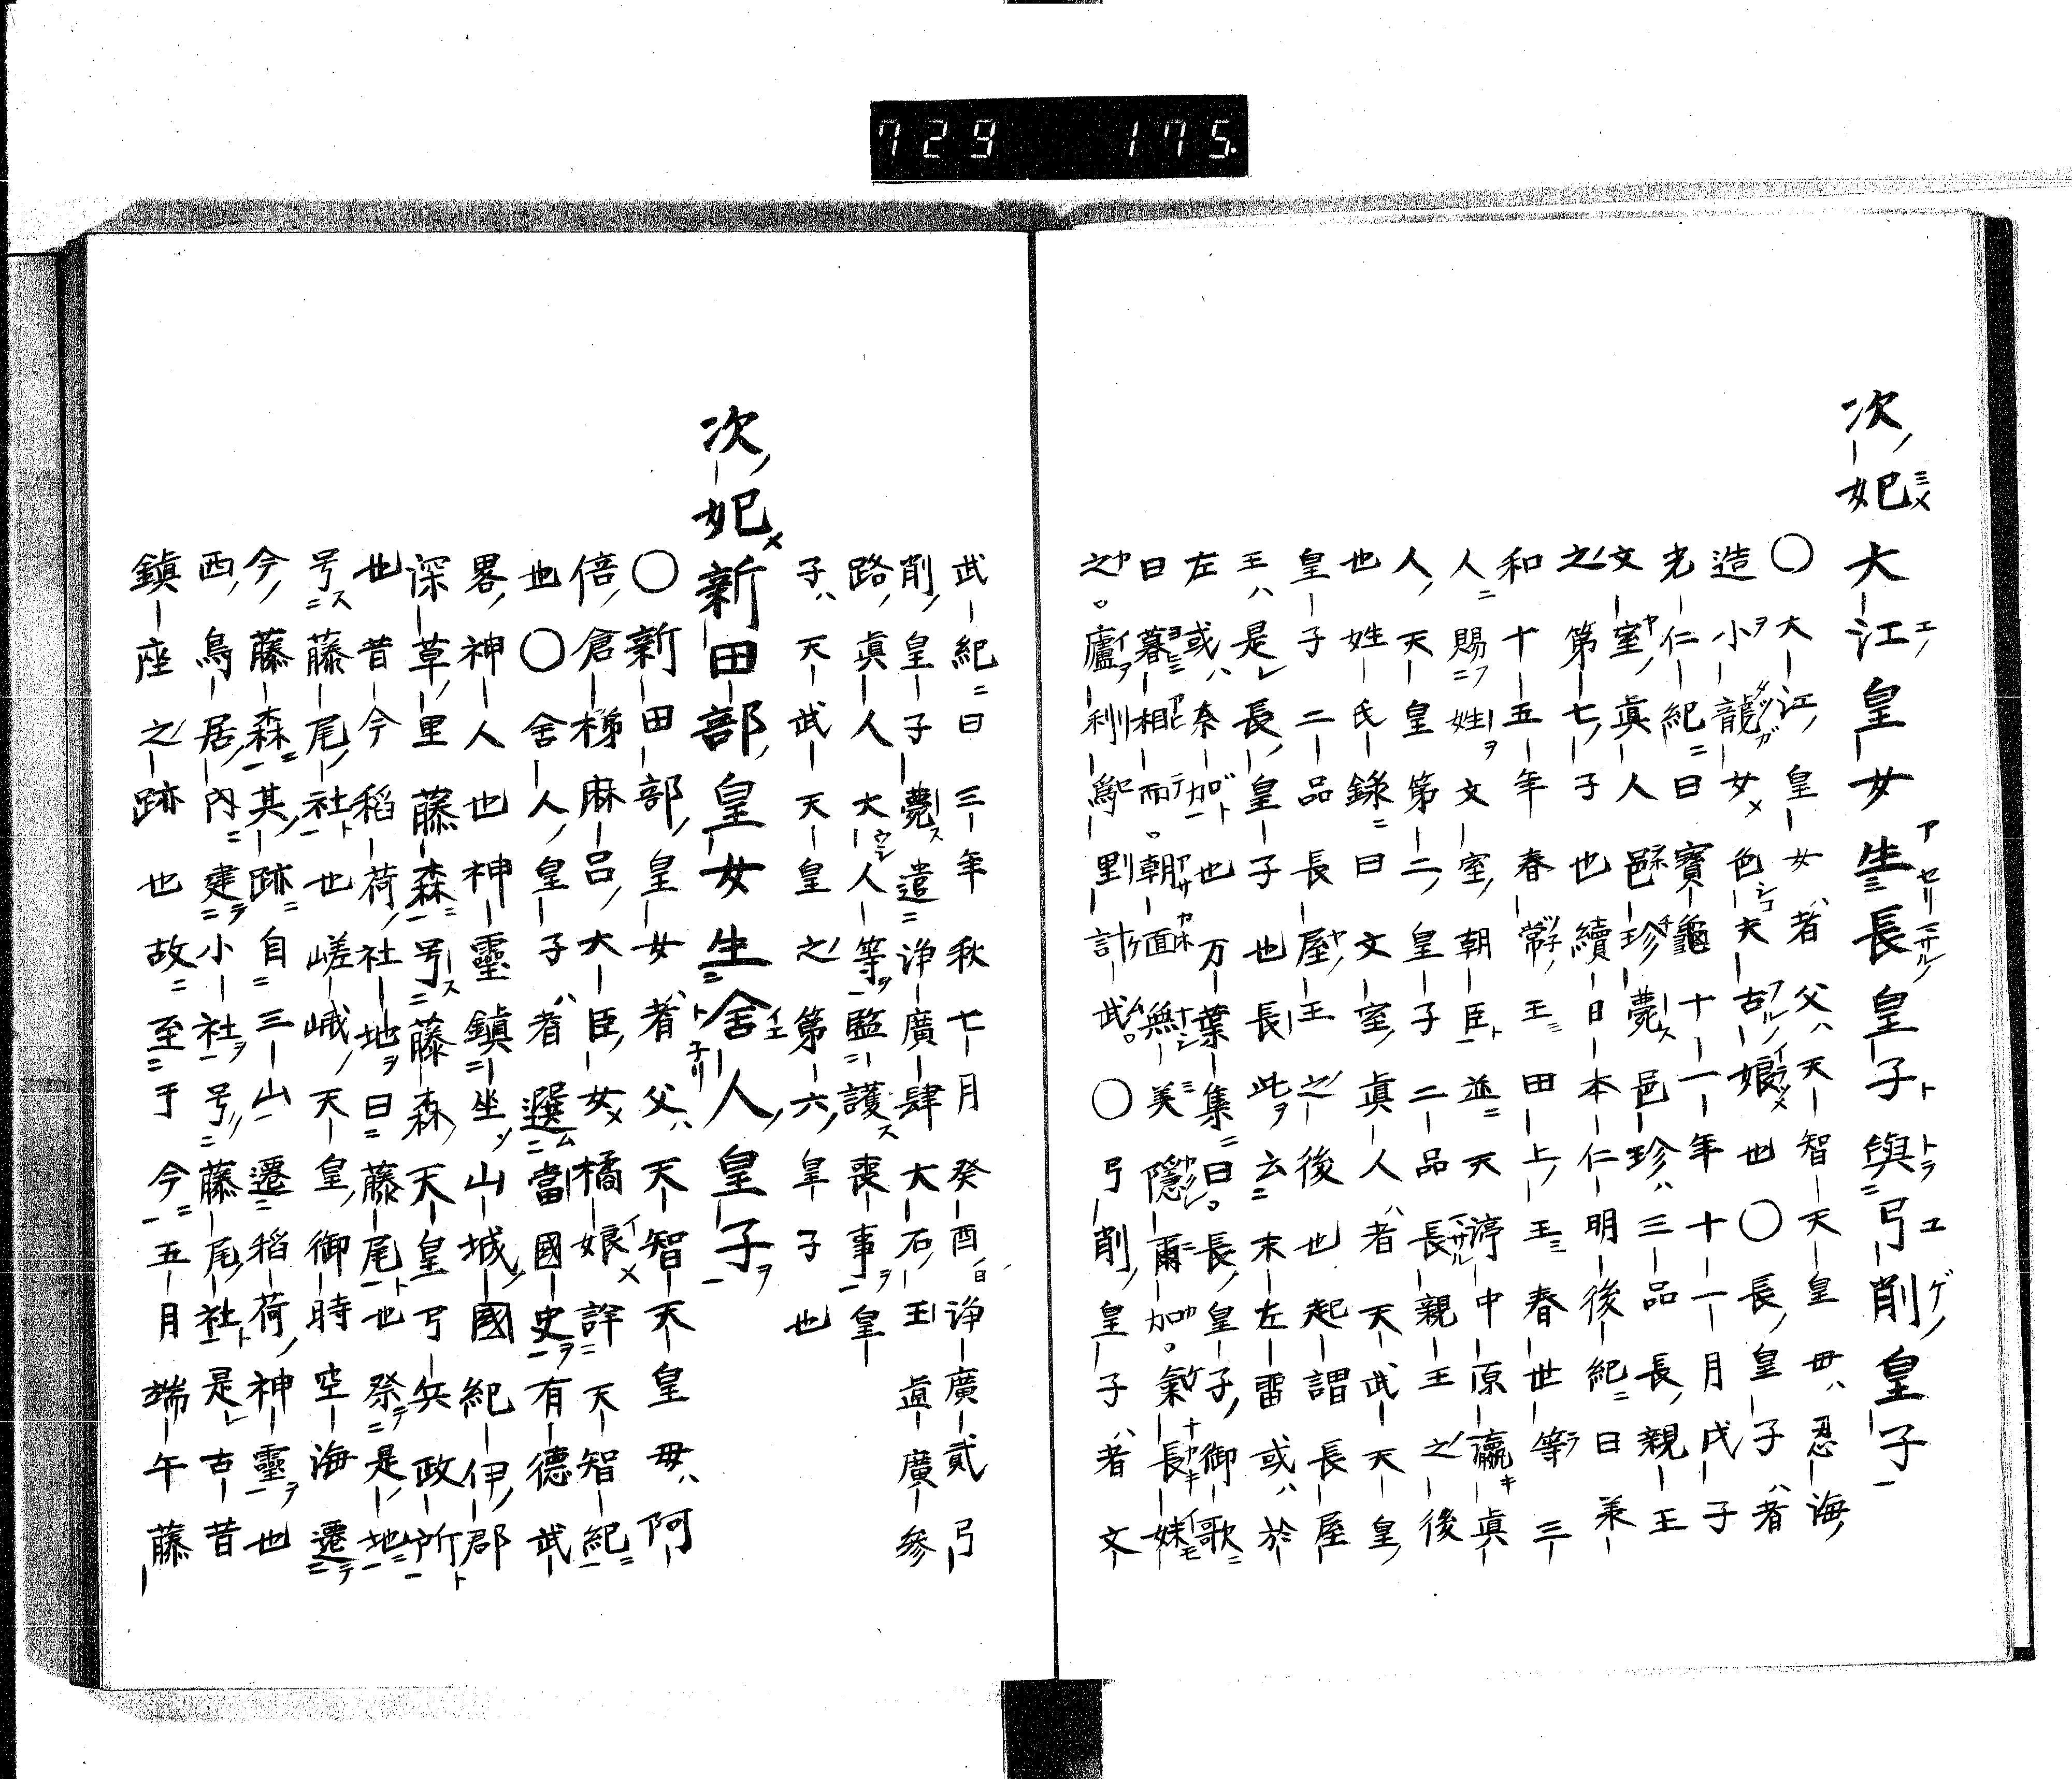 729 175.
次妃大江皇女生長皇子與弓削皇子
〇大江皇女者父天智天皇毋忍海
造小龍女色夫古娘也〇長皇子者
光仁紀曰寳龜十一年十一月戊子
文室眞人邑珍薨邑珍三品長親王
之第七子也續日本仁明後紀曰兼
和十五年春常王田上王春世等三
人賜姓文室朝臣並天渟中原瀛眞
人天皇第二皇子二品長親王之後
也姓氏錄曰文室眞人者天武天皇
皇子二品長屋王之後也起謂長屋
王是長皇子也長此云末左雷或於
左或奈加也万葉集曰長皇子御歌
曰暮相而朝面無美隱爾加氣長妹
之廬利爲里計武〇弓削皇子者文
武紀曰三年秋七月癸酉浄廣貳弓
削皇子薨遣浄廣肆大石王直廣參
路眞人大人等監護喪事皇
子天武天皇之第六皇子也
次妃新田部皇女生舍人皇子
〇新田部皇女者父天智天皇毋阿
倍倉梯麻呂大臣女橘娘詳天智紀
也〇舍人皇子者選當國史有德武
畧神人也神靈鎮坐山城國紀伊郡
深草里藤森号藤森天皇弓兵政所
也昔今稻荷社地曰藤尾也祭是地
号藤尾社也嵯峨天皇御時空海遷
今藤森其跡自三山遷稻荷神靈也
西鳥居內建小社号藤尾社是古昔
鎮座之跡也故至于今五月端午藤